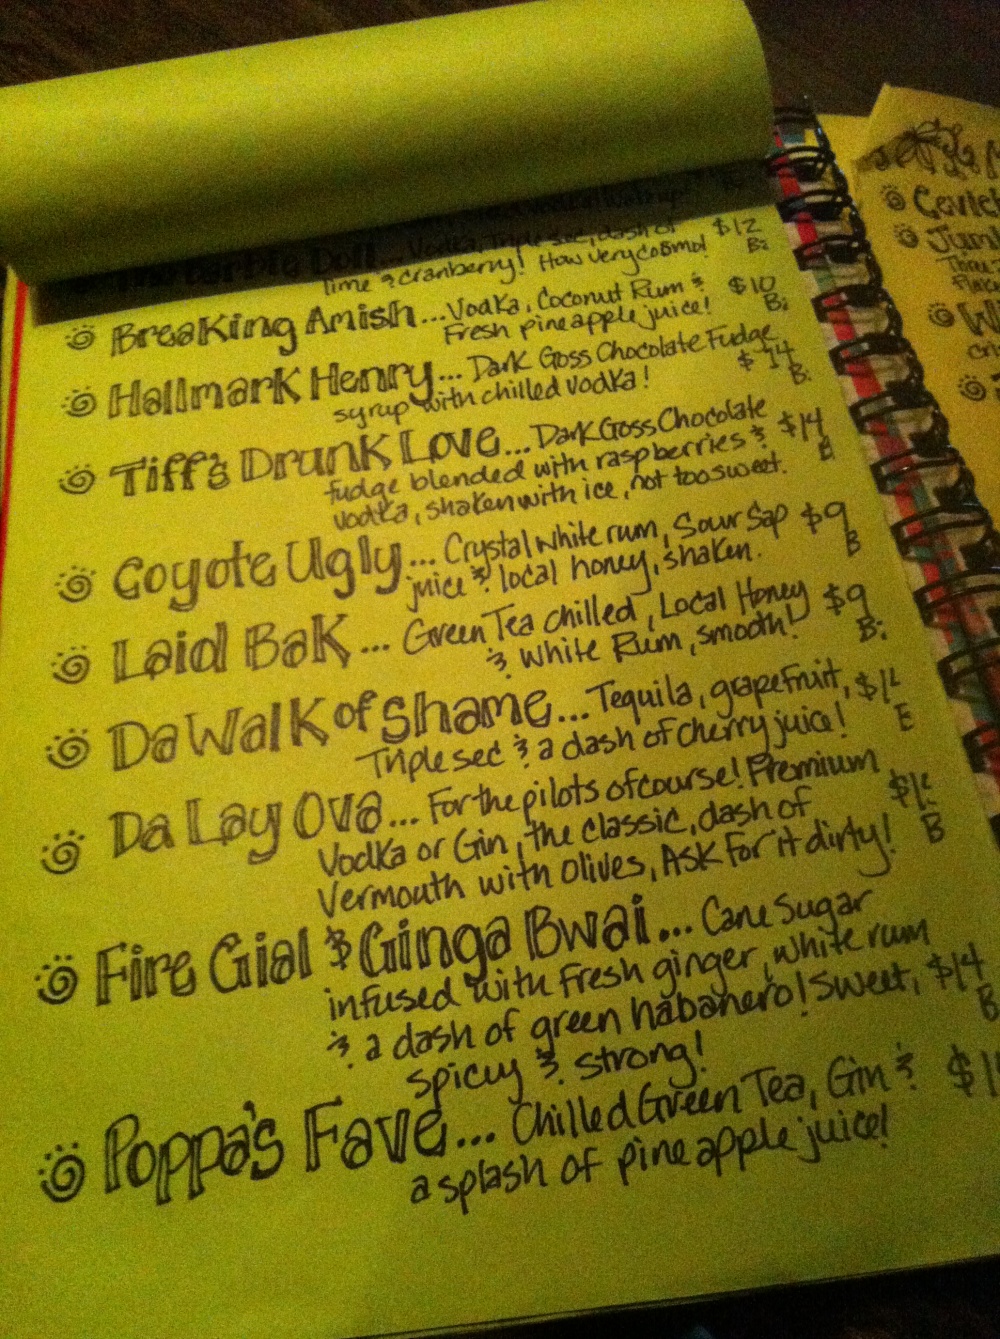 Barbie Doll... Vodka, Triple sec, dash of $12
lime & cranberry! How very cosmo! B:
Breaking Amish...Vodka, Coconut Rum & $10
Fresh pineapple juice! B:
Hallmark Henry... Dark Goss Chocolate Fudge $14
syrup with chilled vodka! B:
Tiff's Drunk Love...Dark Goss Chocolate $14
fudge blended with raspberries & B
vodka, shaken with ice, not too sweet.
Coyote Ugly... Crystal white rum, Sour Sap $9
juice & local honey, shaken. B
Laid Bak... Green Tea chilled, Local Honey $9
& White Rum, smooth! B:
Da Walk of Shame...Tequila, grapefruit,
Triple sec & a dash of cherry juice!
Da Lay Ova... For the pilots of course! Premium
Vodka or Gin, the classic, dash of B
Vermouth with Olives, Ask for it dirty!
Fire Gial & Ginga Bwai... Cane Sugar
infused with fresh ginger, white rum
& a dash of green habanero! Sweet, $14
spicy & strong! B
Poppa's Fave... Chilled Green Tea, Gin &
a splash of pineapple juice!